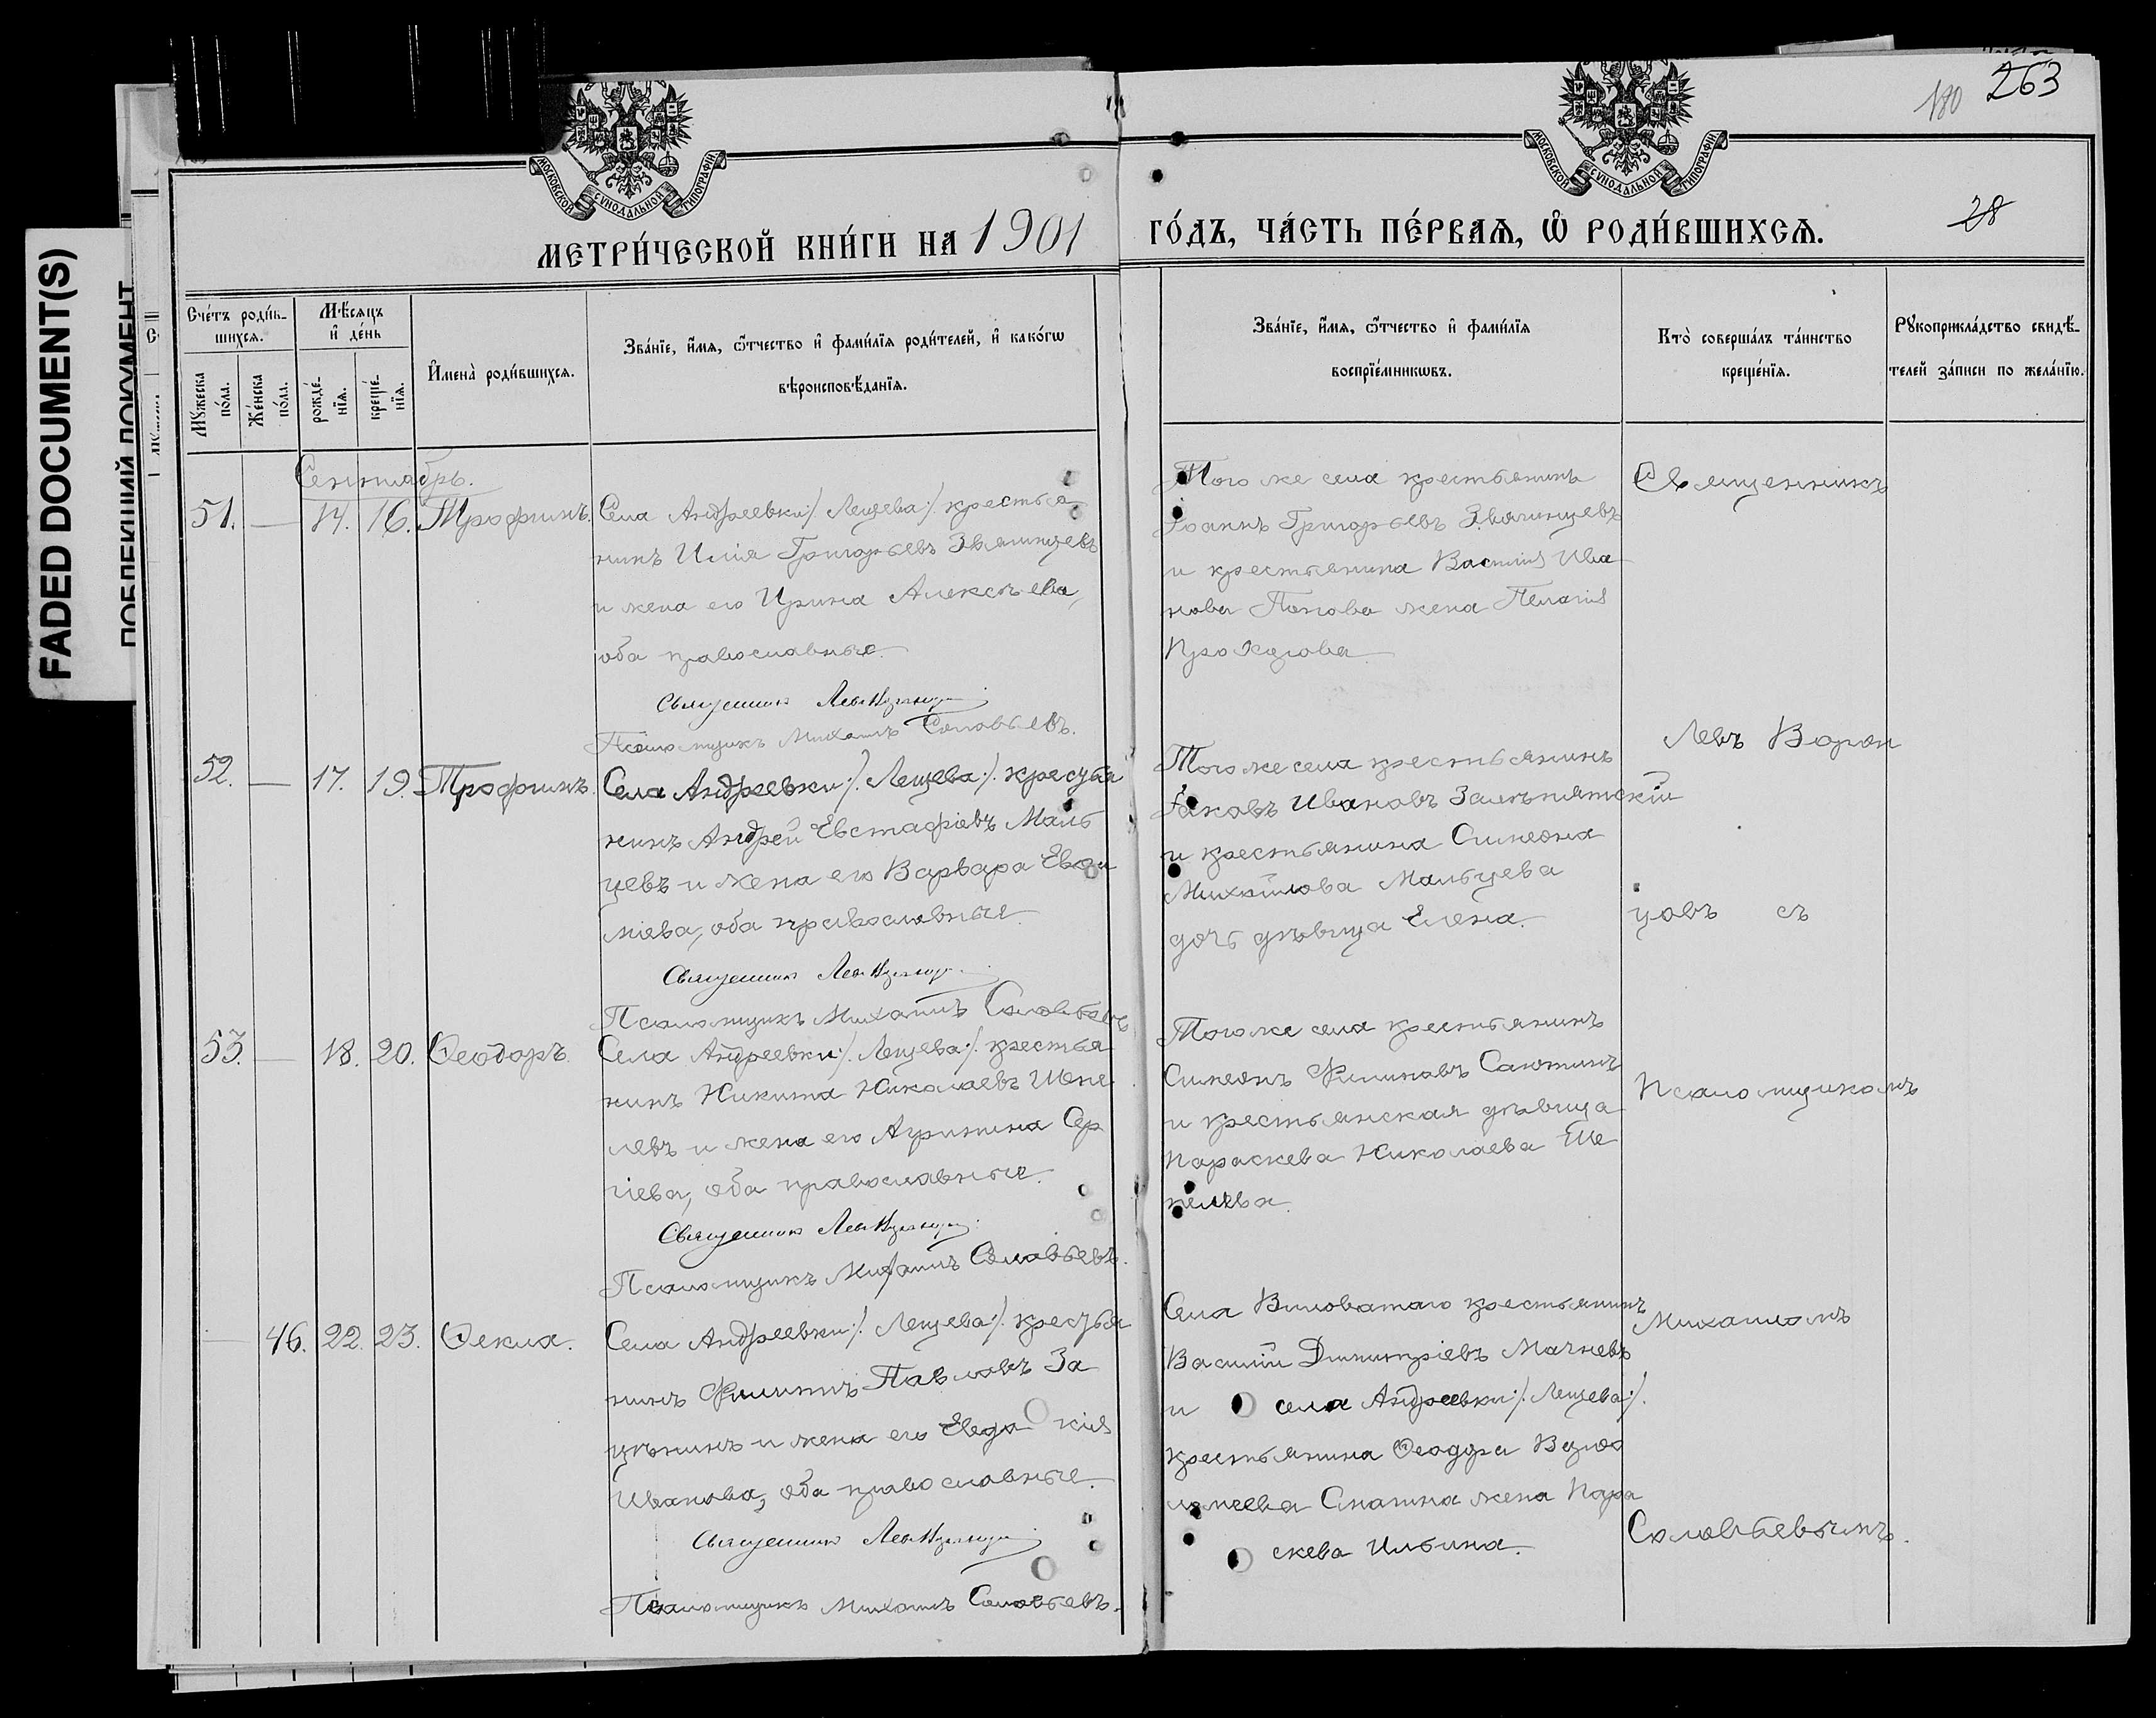 FADED DOCUMENT(S)
180
263
28
МОСКОВСКОЙ СѴНОДАЛЬНОЙ ТИПОГРАФІИ.
МОСКОВСКОЙ СѴНОДАЛЬНОЙ ТИПОГРАФІИ.
МЕТРИ́ЧЕСКОЙ КНИ́ГИ НА 1901 ГО́ДЪ, ЧА́СТЬ ПЕ́РВАѦ, Ѽ РОДИ́ВШИХСѦ.
Сче́тъ роди́в-
шихсѧ.
Мꙋ́жеска по́ла.
Же́нска по́ла.
Мѣ́сѧцъ
и҆ де́нь
рожде́-
нїѧ.
креще́-
нїѧ.
И҆мена̀ роди́вшихсѧ.
Зва́нїе, и҆́мѧ, ѻ҆́тчество и҆ фами́лїѧ роди́телей, и҆ како́гѡ
вѣроисповѣ́данїѧ.
Зва́нїе, и҆́мѧ, ѻ҆́тчество и҆ фами́лїѧ
воспрїе́мникѡвъ.
Кто̀ соверша́лъ та́инство
креще́нїѧ.
Рꙋкоприкла́дство свидѣ́-
телей за́писи по жела́нїю.
Сентябрь.
51. — 14. 16. Трофимъ.
Села Андреевки ./. Лещева ./. крестья
нинъ Илія Григорьевъ Звягинцевъ
и жена его Ирина Алексѣева,
оба православные.
Священникъ Левъ
Псаломщикъ Михаилъ Соловьевъ.
Того же села крестьянинъ
Іоаннъ Григорьевъ Звягинцевъ
и крестьянина Василія Ива
нова Попова жена Пелагія
Прохорова
52. — 17. 19. Трофимъ.
Села Андреевки ./. Лещева ./. крестья
нинъ Андрей Евстафіевъ Маль
цевъ и жена его Варвара
міева, оба православные.
Священникъ Левъ
Псаломщикъ Михаилъ Соловьевъ
Того же села крестьянинъ
Іаковъ Ивановъ Замѣпятскій
и крестьянина Симеона
Михайлова Мальцева
дочь дѣвица Елена.
53. — 18. 20. Ѳеодоръ.
Села Андреевки ./. Лещева ./. крестья
нинъ Никита Николаевъ Шепе
левъ и жена его Агрипина Сер
гіева, оба православные.
Священникъ Левъ
Псаломщикъ Михаилъ Соловьевъ.
Того же села крестьянинъ
Симеонъ Филиповъ Саютинъ
и крестьянская дѣвица
Параскева Николаева Ше
пелева.
— 46. 22. 23. Ѳекла.
Села Андреевки ./. Лещева ./. крестья
нинъ Филиппъ Павловъ За
цѣпинъ и жена его Евдо кія
Иванова, оба православные.
Священникъ Левъ
Псаломщикъ Михаилъ Соловьевъ.
Села Виловатаго крестьянинъ
Василій Димитріевъ Мачневъ
и села Андреевки ./. Лещева ./.
крестьянина Ѳеодора
жена Пара
скева Ильина.
Священникъ
Левъ
цовъ съ
Псаломщикомъ
Михаиломъ
Соловьевымъ.